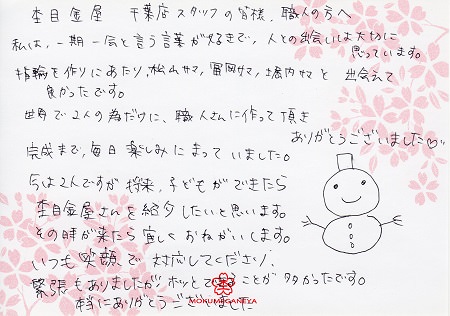 杢目金屋 千葉店スタッフの皆様、職人の方へ
私は、一期一会と言う言葉が好きで、人との出会いは大切に
思っています。
指輪を作りにあたり、松山サマ、冨岡サマ、堀内サマと出会えて
良かったです。
世界で2人の為だけに、職人さんに作って頂き
ありがとうございました♡
完成まで、毎日楽しみにまっていました。
今は2人ですが将来、子どもができたら
杢目金屋さんを紹介したいと思います。
その時が来たら宜しくおねがいします。
いつも笑顔で対応してくださり、
緊張もありましたが、ホッとすることが多かったです。
本当にありがとうございました
MOKUMEGANEYA